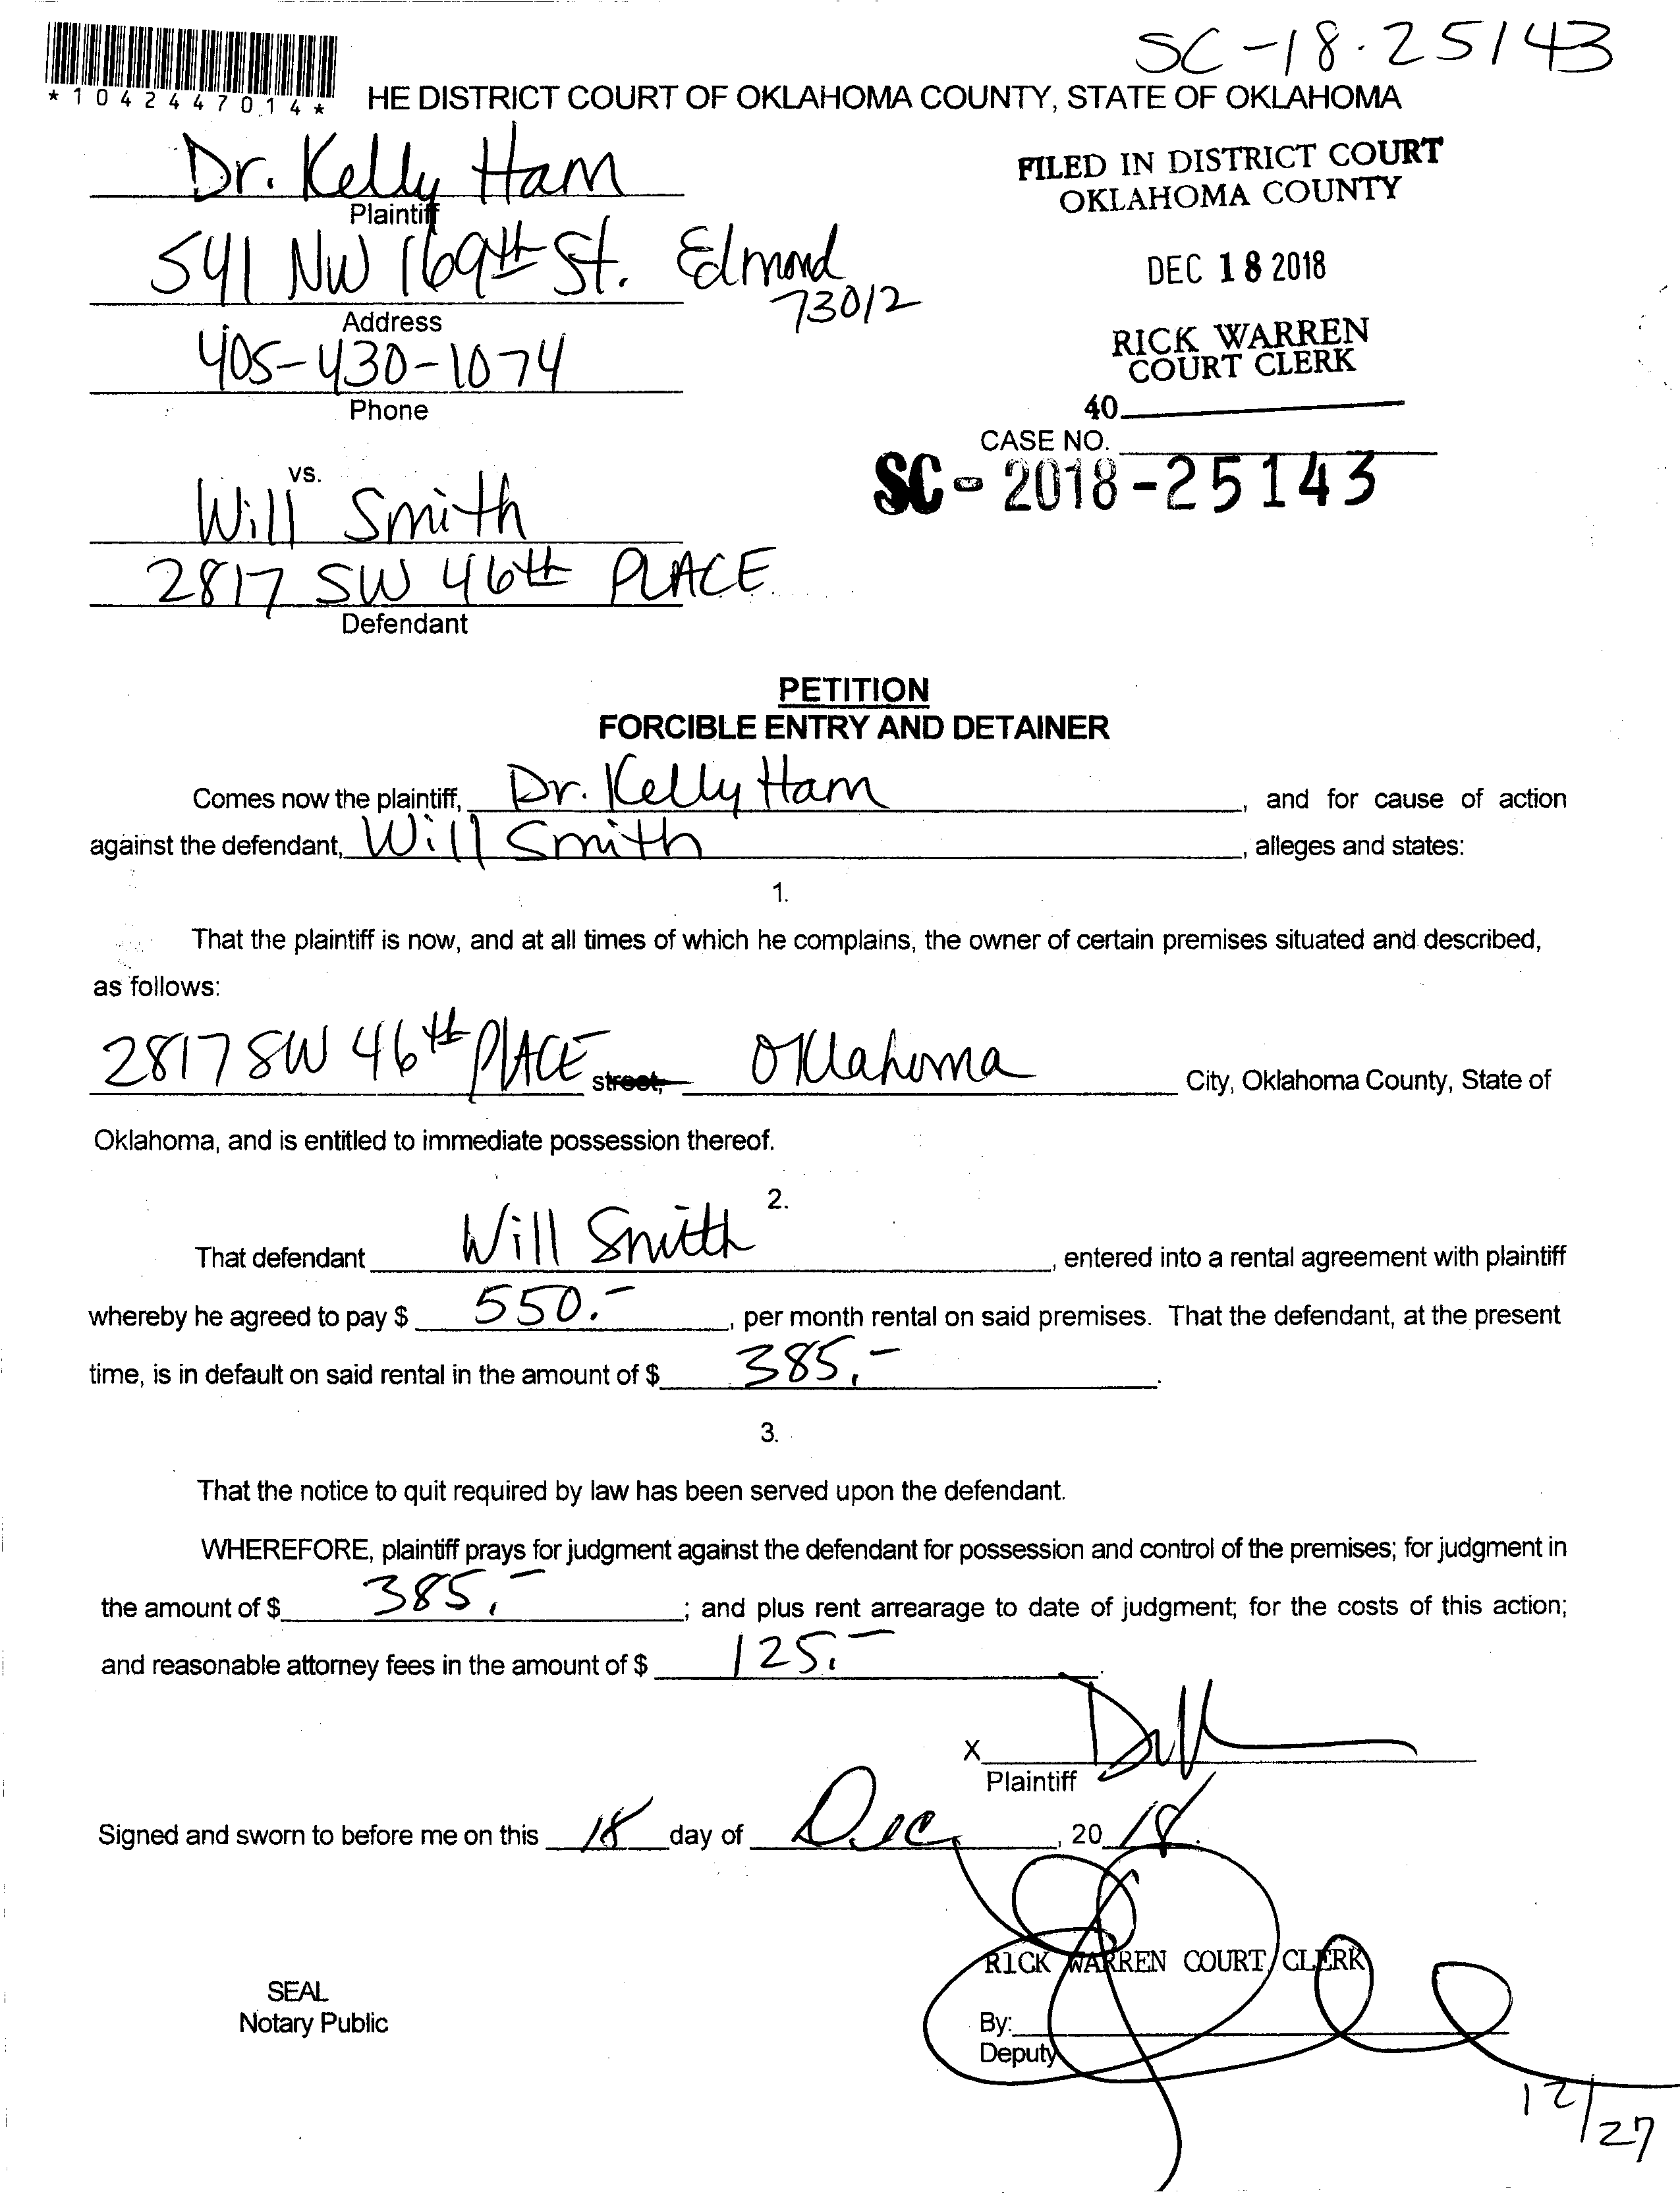 SC-18-25143
*1042447014*
HE DISTRICT COURT OF OKLAHOMA COUNTY, STATE OF OKLAHOMA
Dr. Kelly Ham
Plaintiff
541 NW 169th St. Edmond
73012
Address
405-430-1074
Phone
FILED IN DISTRICT COURT
OKLAHOMA COUNTY
DEC 18 2018
RICK WARREN
COURT CLERK
40
CASE NO.
SC-2018-25143
vs.
Will Smith
2817 SW 46th PLACE
Defendant
PETITION
FORCIBLE ENTRY AND DETAINER
Comes now the plaintiff, Dr. Kelly Ham, and for cause of action
against the defendant, Will Smith, alleges and states:
1.
That the plaintiff is now, and at all times of which he complains, the owner of certain premises situated and described,
as follows:
2817 SW 46th PLACE street, Oklahoma City, Oklahoma County, State of
Oklahoma, and is entitled to immediate possession thereof.
2.
That defendant Will Smith, entered into a rental agreement with plaintiff
whereby he agreed to pay $ 550.-, per month rental on said premises. That the defendant, at the present
time, is in default on said rental in the amount of $ 385.-.
3.
That the notice to quit required by law has been served upon the defendant.
WHEREFORE, plaintiff prays for judgment against the defendant for possession and control of the premises; for judgment in
the amount of $ 385.-; and plus rent arrearage to date of judgment; for the costs of this action;
and reasonable attorney fees in the amount of $ 125.-.
X
Plaintiff
Signed and sworn to before me on this 18 day of Dec, 20 18.
RICK WARREN COURT CLERK
SEAL
Notary Public
By:
Deputy
12/27